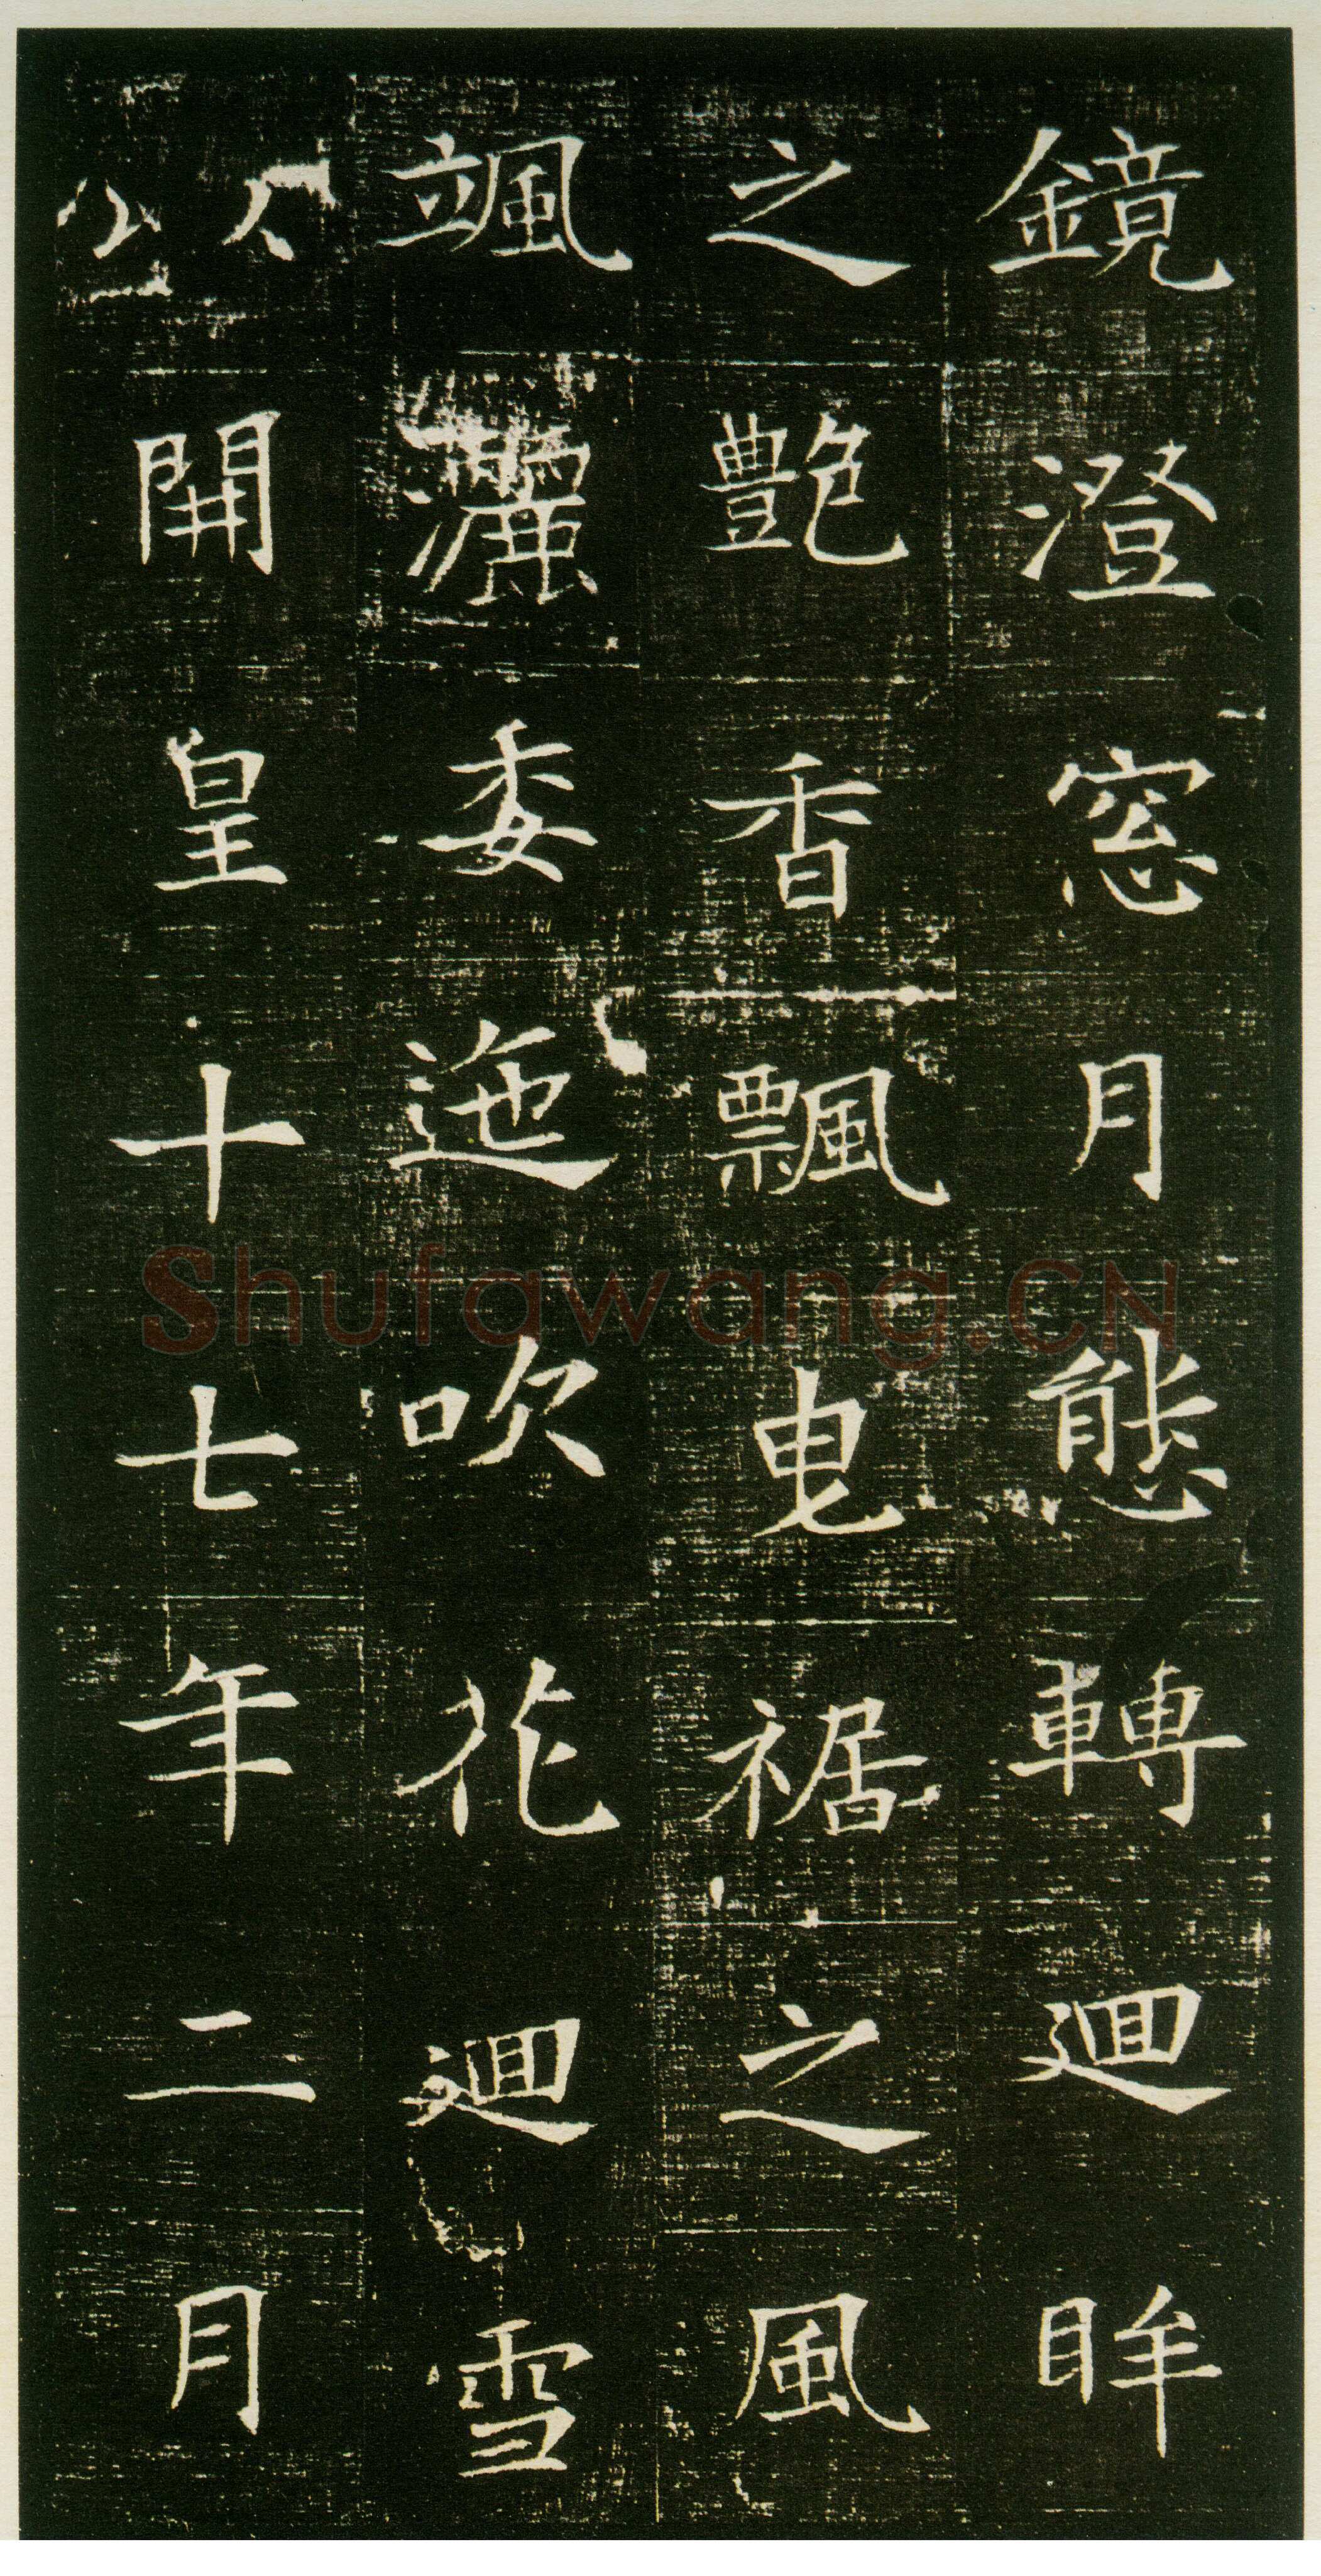 鏡澄窓月態轉迴眸
之艶香飄曳裾之風
颯灑委迤吹花迴雪
以開皇十七年二月
Shufawang.CN